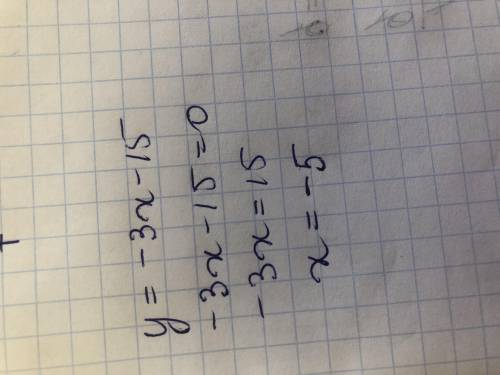 y = -3x - 15
-3x - 15 = 0
-3x = 15
x = -5